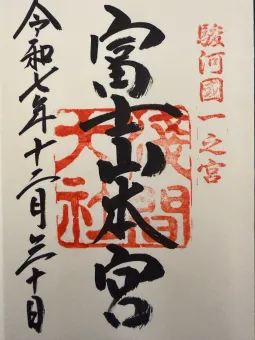 駿河國一之宮
富士山本宮
淺間
大社
令和七年十二月三十日